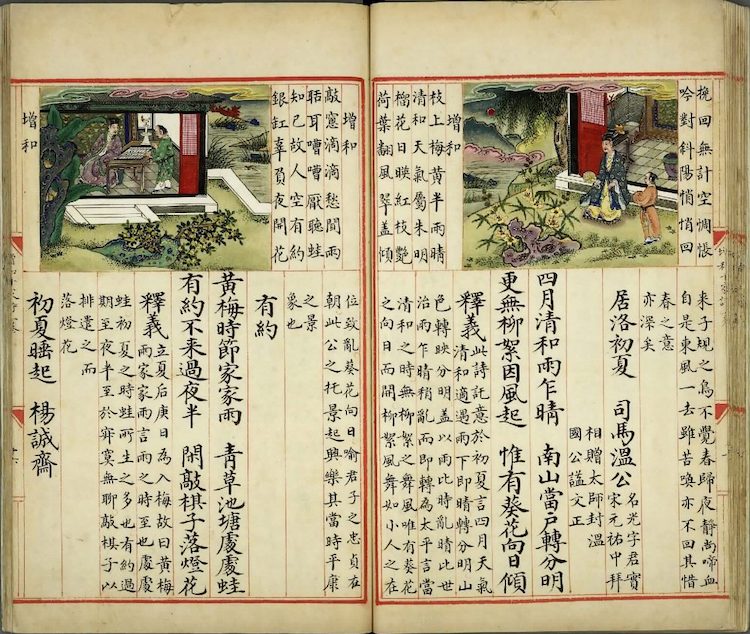 挽回無計空惆悵
吟對斜陽悄悄回
增和
枝上梅黃半雨晴
清和天氣屬朱明
榴花日映紅枝艷
荷葉翻風翠蓋傾
來子規之鳥不覺春歸夜靜尚啼血
自是東風一去雖苦喚亦不回其惜
春之意
亦深矣
居洛初夏 司馬溫公
名光字君實
宋元祐中拜
相贈太師封溫
國公諡文正
四月清和雨乍晴 南山當戶轉分明
更無柳絮因風起 惟有葵花向日傾
釋義 此詩託意於初夏言四月天氣
清和適遇雨下即晴轉分明山
色轉映分明蓋以雨比時亂晴比世
治雨乍晴稍亂而即轉為太平言當
清和之時無柳絮之舞風唯有葵花
之向日而開柳絮風舞如小人之在
增和
敲窓滴滴愁間雨
聒耳嘈嘈厭聽蛙
知已故人空有約
銀缸辜負夜開花
增和
位致亂葵花向日喻君子之忠貞在
朝此公之托景起興樂其當時平康
之景
象也
有約
黃梅時節家家雨 青草池塘處處蛙
有約不來過夜半 閑敲棋子落燈花
釋義 立夏后庚日為入梅故曰黃梅
雨家家雨言雨之時至也處處
蛙初夏之時蛙所生之多也有約過
期至夜半至於寂寞無聊敲棋子以
排遣之而
落燈花
初夏睡起 楊誠齋